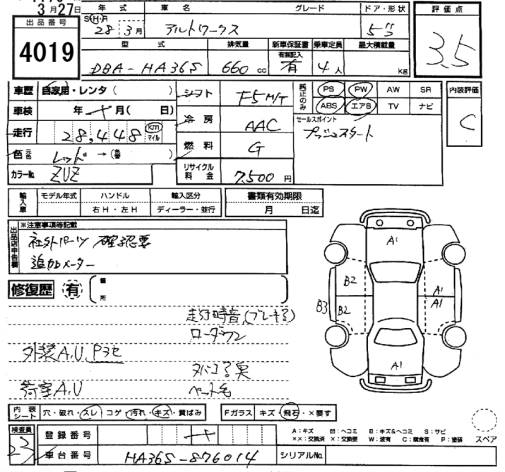 3月27日
年式 車名 グレード ドア・形状 評価点
出品番号
S・H・A 28年3月 アルトワークス 5ドア
4019
型式 排気量 新車保証書 乗車定員 最大積載量
有 記録簿
3.5
DBA-HA36S 660cc 有 4人 KG
車歴 自家用・レンタ( ) シフト F5 M/T 純正のみ PS PW AW SR 内装評価
車検 年 月( 日) 冷房 AAC ABS エアB TV ナビ C
走行 28,448 km マイル 燃料 G セールスポイント
プッシュスタート
色 元色 レッド →(替 )
カラーNo. ZUZ リサイクル料金 7,500円
輸入車 モデル年式 ハンドル 輸入区分 書類有効期限
右H・左H ディーラー・並行 月 日迄
出品店申告欄 ※注意事項等記載
社外パーツ確認要
追加メーター
修復歴 有 箇所
走行時音(ブレーキ?)
ローダウン
外装A.U.Pヨゼ
タバコ臭
荷室A.U
ペット毛
A1
B2 A1
B3 B2 A1
A1
内装シート 穴・破れ・スレ コゲ 汚れ・キズ・黄ばみ Fガラス キズ・飛石・×要す
検査員 23
登録番号
A:キズ U:ヘコミ B:キズ&ヘコミ S:サビ
XX:交換済 X:交換要 W:波有 C:腐食有 P:塗装 スペア
車台番号 HA36S-876014 シリアルNo.